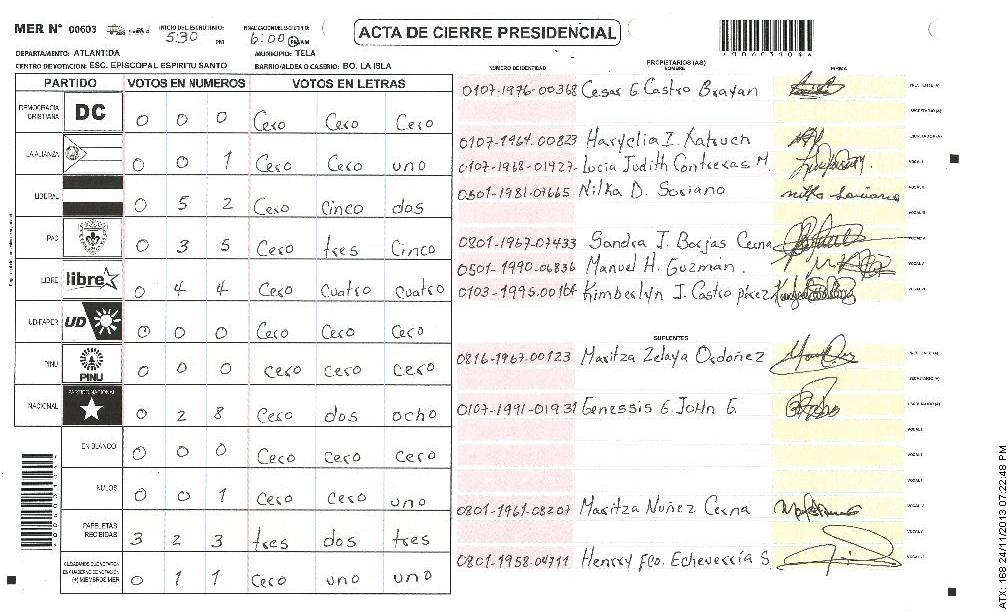 MER N° 00603
INICIO DEL ESCRUTINIO:
5:30 PM
FINALIZACION DEL ESCRUTINIO:
6:00 PM/AM
ACTA DE CIERRE PRESIDENCIAL
DEPARTAMENTO: ATLANTIDA
MUNICIPIO: TELA
CENTRO DE VOTACION: ESC. EPISCOPAL ESPIRITU SANTO
BARRIO/ALDEA O CASERIO: BO. LA ISLA
PARTIDO VOTOS EN NUMEROS VOTOS EN LETRAS
DEMOCRACIA CRISTIANA DC 0 0 0 Cero Cero Cero
LA ALIANZA 0 0 1 Cero Cero uno
LIBERAL 0 5 2 Cero Cinco dos
PAC 0 3 5 Cero tres Cinco
LIBRE libre 0 4 4 Cero Cuatro Cuatro
UD-FAPER UD 0 0 0 Cero Cero Cero
PINU PINU 0 0 0 cero cero cero
NACIONAL PARTIDO NACIONAL 0 2 8 Cero dos ocho
EN BLANCO 0 0 0 Cero Cero Cero
NULOS 0 0 1 Cero Cero uno
PAPELETAS RECIBIDAS 3 2 3 tres dos tres
(+) MIEMBROS MER 0 1 1 Cero uno uno
NUMERO DE IDENTIDAD
PROPIETARIOS (AS)
NOMBRE
FIRMA
0107-1976-00368 Cesar G. Castro Brayan
0107-1964-00823 Haryclia I. Katsuch
0107-1968-01927- Lucia Judith Contreras M.
0501-1981-07665 Nilka D. Soriano
0801-1967-07433 Sandra J. Borjas Cerna
0501-1990-06836 Manuel H. Guzmán.
0103-1995-00164 Kimberlyn J. Castro pérez
SUPLENTES
0816-1967-00123 Maritza Zelaya Ordoñez
0107-1991-01931 Genessis G. John G.
0801-1961-08207 Maritza Nuñez Cerna
0801-1958-04711 Henrry Fco. Echeverría S.
ATX: 168 24/11/2013 07:22:48 PM